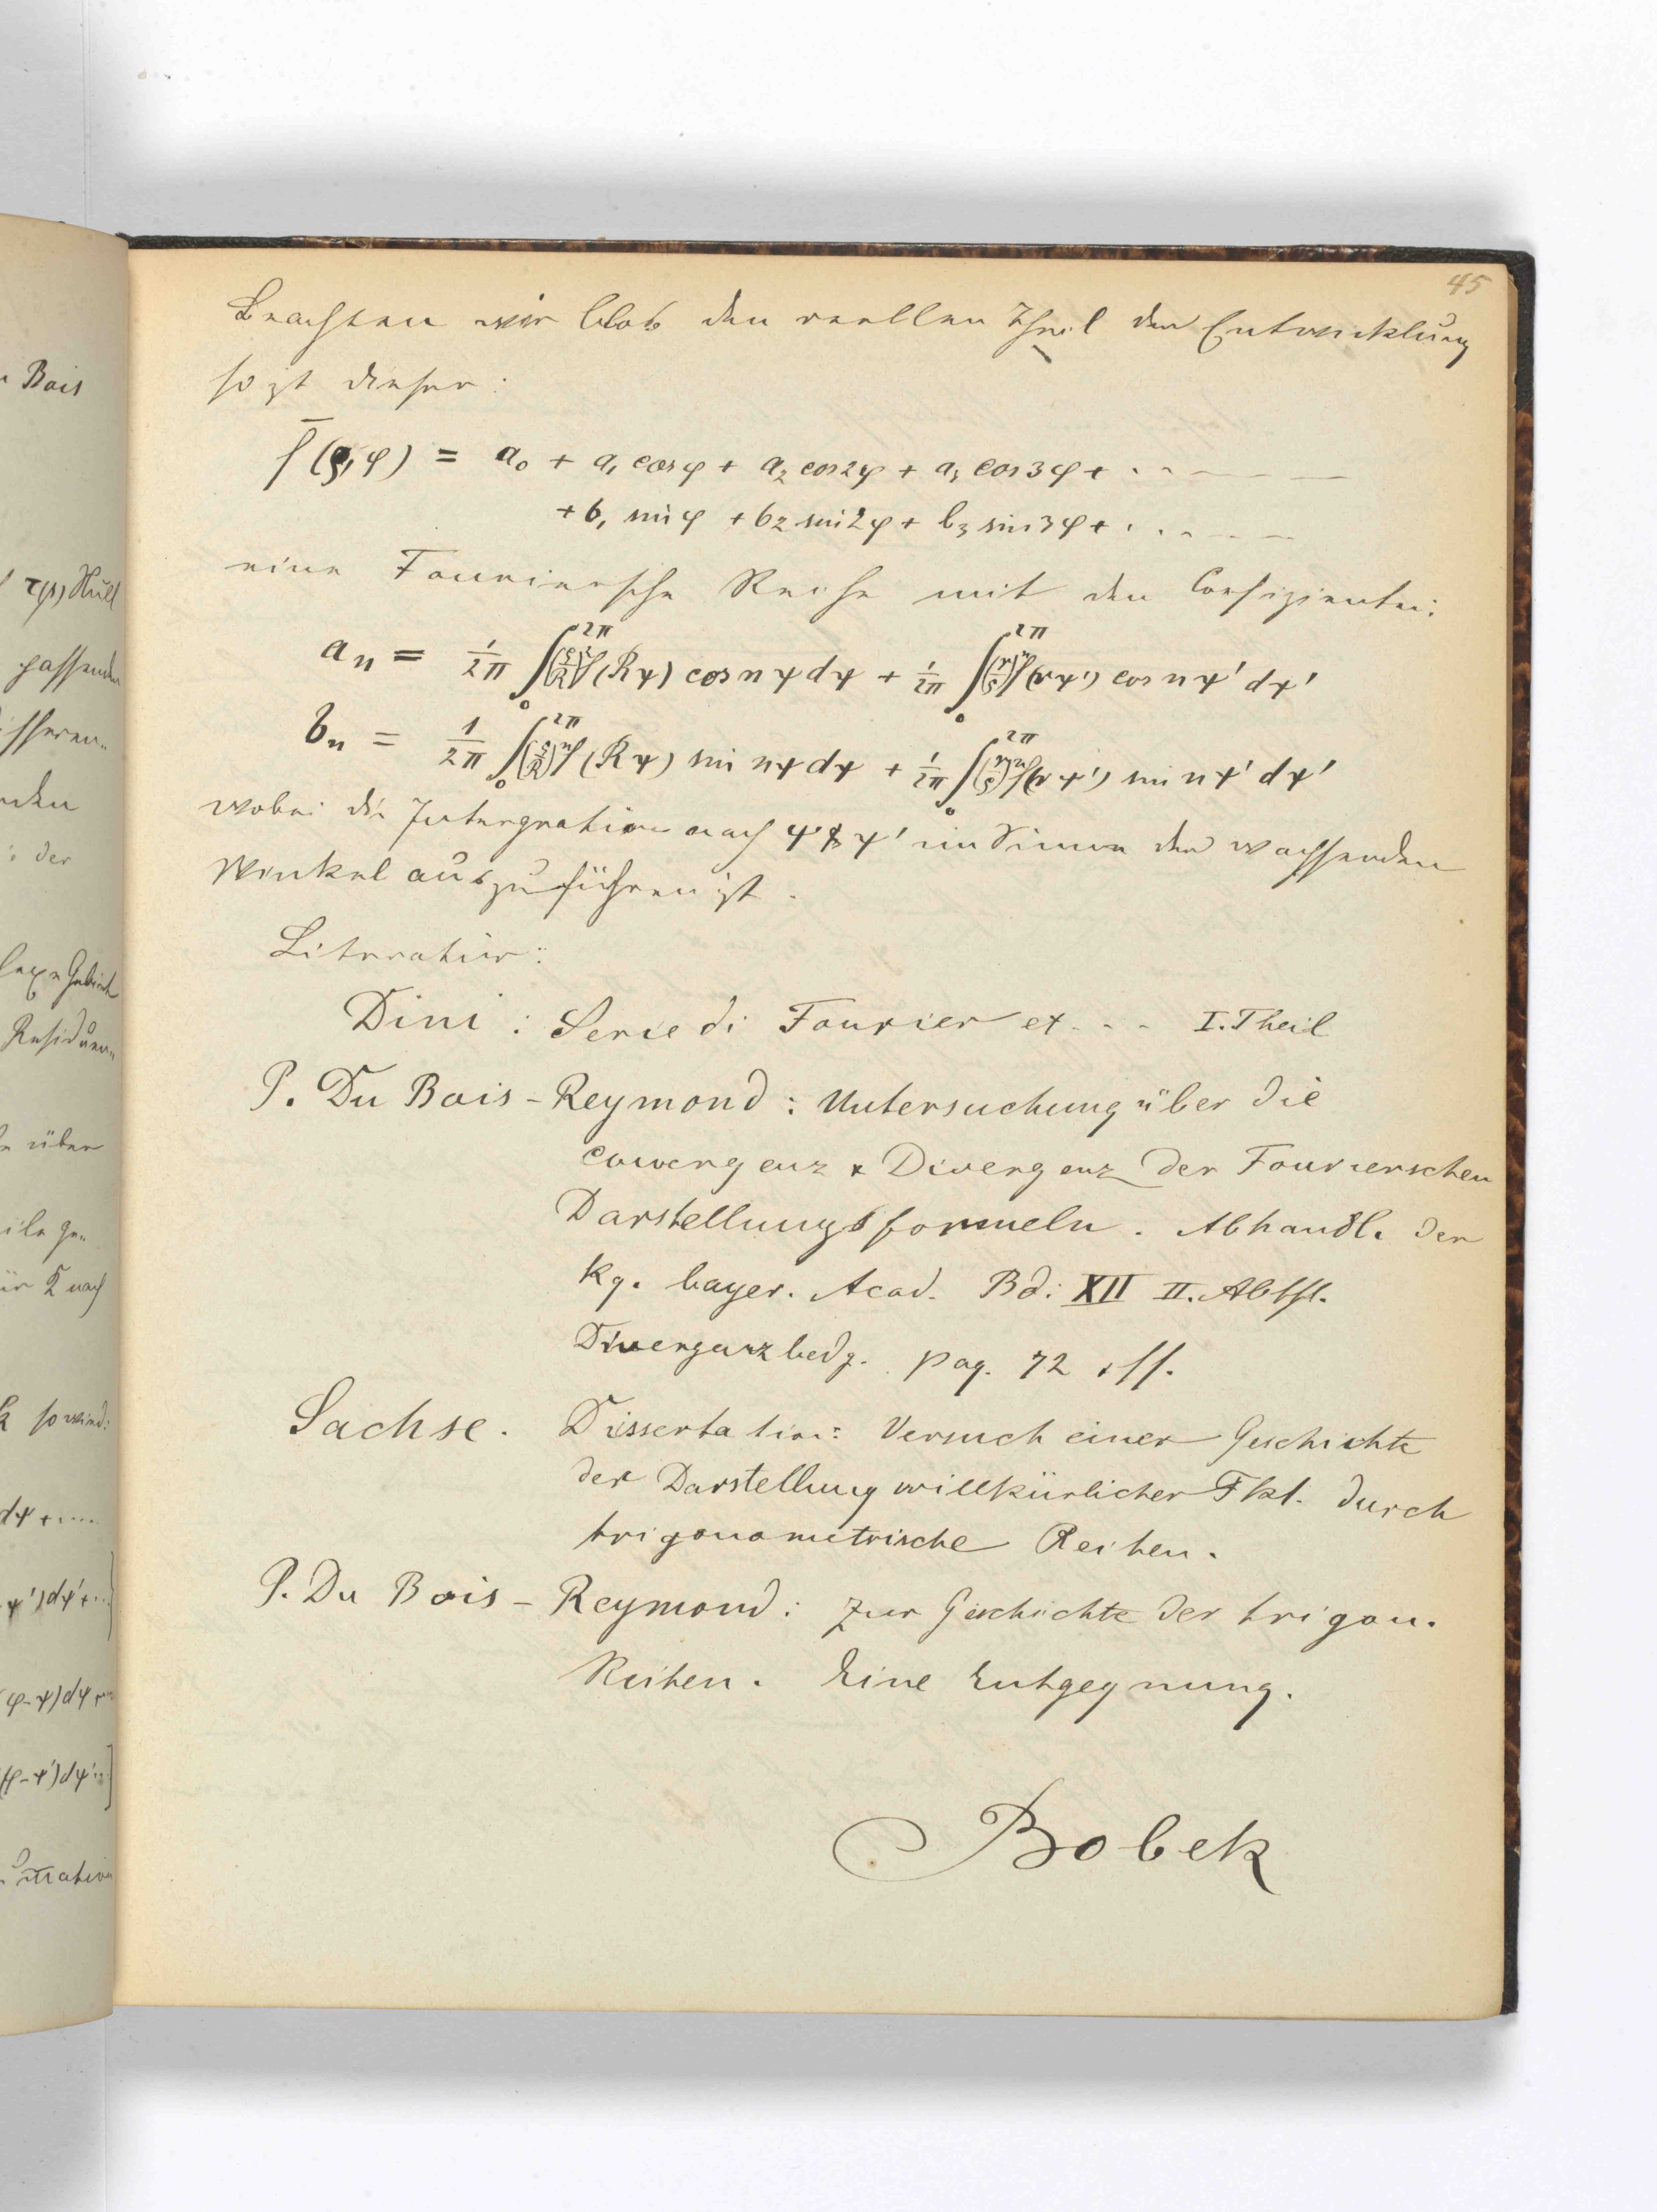 45
Beachten wir blos den reellen Theil der Entwicklung
so ist dieser:
f̄(ρ,φ) = a₀ + a₁ cosφ + a₂ cos2φ + a₃ cos3φ + . . — — —
+ b₁ sinφ + b₂ sin2φ + b₃ sin3φ + . . . — — —
eine Fouriersche Reihe mit den Coefizienten:
aₙ = 1/2π ∫₀^2π (ρ/R)ⁿ f(Rψ) cos nψ dψ + 1/2π ∫₀^2π (r/ρ)ⁿ f(rψ') cos nψ' dψ'
bₙ = 1/2π ∫₀^2π (ρ/R)ⁿ f(Rψ) sin nψ dψ + 1/2π ∫₀^2π (r/ρ)ⁿ f(rψ') sin nψ' dψ'
wobei die Intergration nach ψ & ψ' im Sinne der wachsenden
Winkel auszuführen ist.
Literatur:
Dini : Serie di Fourier et . - - I. Theil
P. Du Bois-Reymond : Untersuchung über die
Convergenz & Divergenz der Fourierschen
Darstellungsformeln. Abhandl. der
kg. bayer. Acad. Bd: XII II. Abth.
Divergenzbedg. pag. 72 ff.
Sachse. Dissertation: Versuch einer Geschichte
der Darstellung willkürlicher Fkt. durch
trigonometrische Reihen.
P. Du Bois-Reymond: Zur Geschichte der trigon.
Reihen. Eine Entgegnung.
Bobek
Bois
Null
passende
den
der
Residuen
über
ile ge-
nach
so wird:
dψ + ....
ψ')dψ' + ..]
(φ-ψ)dψ
(φ-ψ')dψ' ]